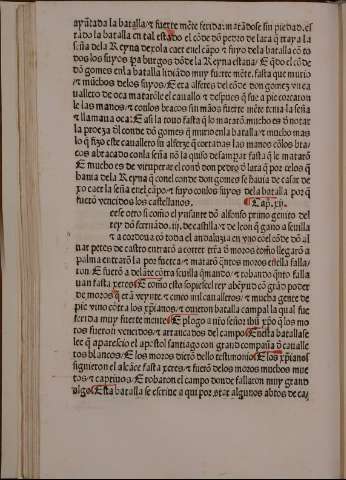 ayũtada la batalla/⁊ fuerte mẽte ferida: matãdose sin piedad. es
tãdo la batalla en tal estado el cõde dõ pedro de lara q̃ traya la
seña dela Reyna dexola caer en el cãpo/⁊ fuyo dela batalla cõ to
dos los suyos pa burgos dõde la Reyna estaua/ E q̃do el cõde
dõ gomes enla batalla lidiãdo muy fuerte mẽte. fasta que murio
⁊ muchos delos suyos/ E era alferes del cõde don gomez vn ca
uallero de oca matarõle el cauallo ⁊ despues q̃ fue a pie cortaron
le las manos/⁊ conlos bracos sin mãos fuerte mẽte tenia la seña
⁊ llamaua oca: E asi la touo fasta q̃ lo matarõ. mucho es õ notar
la proeza ðl conde dõ gomes q̃ murio enla batalla/⁊ mucho mas
lo q̃ fizo este cauallero su alferze q̃ cortadas las manos cõlos bra-
cos abracado conla seña nõ la quiso desampar fasta q̃ le matarõ
E mucho es de vituperar el conð don pedro ð lara q̃ por celos q̃
hauia dela Reyna q̃ conel conde don gomes se hauia de casar de
xo caer la seña enel cãpo/⁊ fuyo conlos suyos dela batalla por q̃
fuerõ vencidos los castellanos. Cap. xij.
eese otro si como el ynfante dõ alfonso primo genito del
rey dõ fernãdo. iij. de castilla ⁊ de leon q̃ gano a seuilla
⁊ a cordoua cõ toda el andaluzia en vno con el cõde dõ al
uar peres de castro entrarõ a correr trã ð moros como llegarõ a
palma entrarõ la por fuerca/⁊ matarõ q̃ntos moros enella falla/
ron. E fuerõ a delãte cõtra seuilla q̃mando/⁊ robando q̃nto falla
uan fasta xeres/ E como esto sopiese el rey abeyud cõ grãd poder
de moros q̃ erã veynte. ⁊ cinco mil caualleros/⁊ mucha gente de
pie vino cõtra los xp̃ianos/⁊ ouieron batalla campal la qual fue
ferida muy fuerte mente/ E plogo a nr̃o señor ihũ xp̃o q̃ los mo
ros fueron vencidos/⁊ arrancados del campo/ E nesta batalla se
lee q̃ aparescio el apostol santiago con grand compaña ð caualle
ros blancos/ E los moros dierõ dello testimonio/ E los xp̃ianos
siguieron el alcãce fasta xeres/⁊ fuerõ delos moros muchos muer
tos/⁊ captiuos/ E robaron el campo donde fallaron muy grand
algo/ Esta batalla se escriue a qui por. otar algunos abtos de ca/